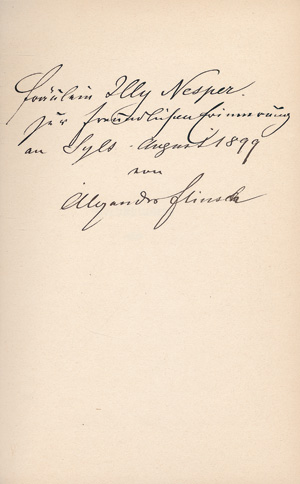 Fräulein Illy Nesper.
zur freundlichen Erinnerung
an Sylt - August 1899
von